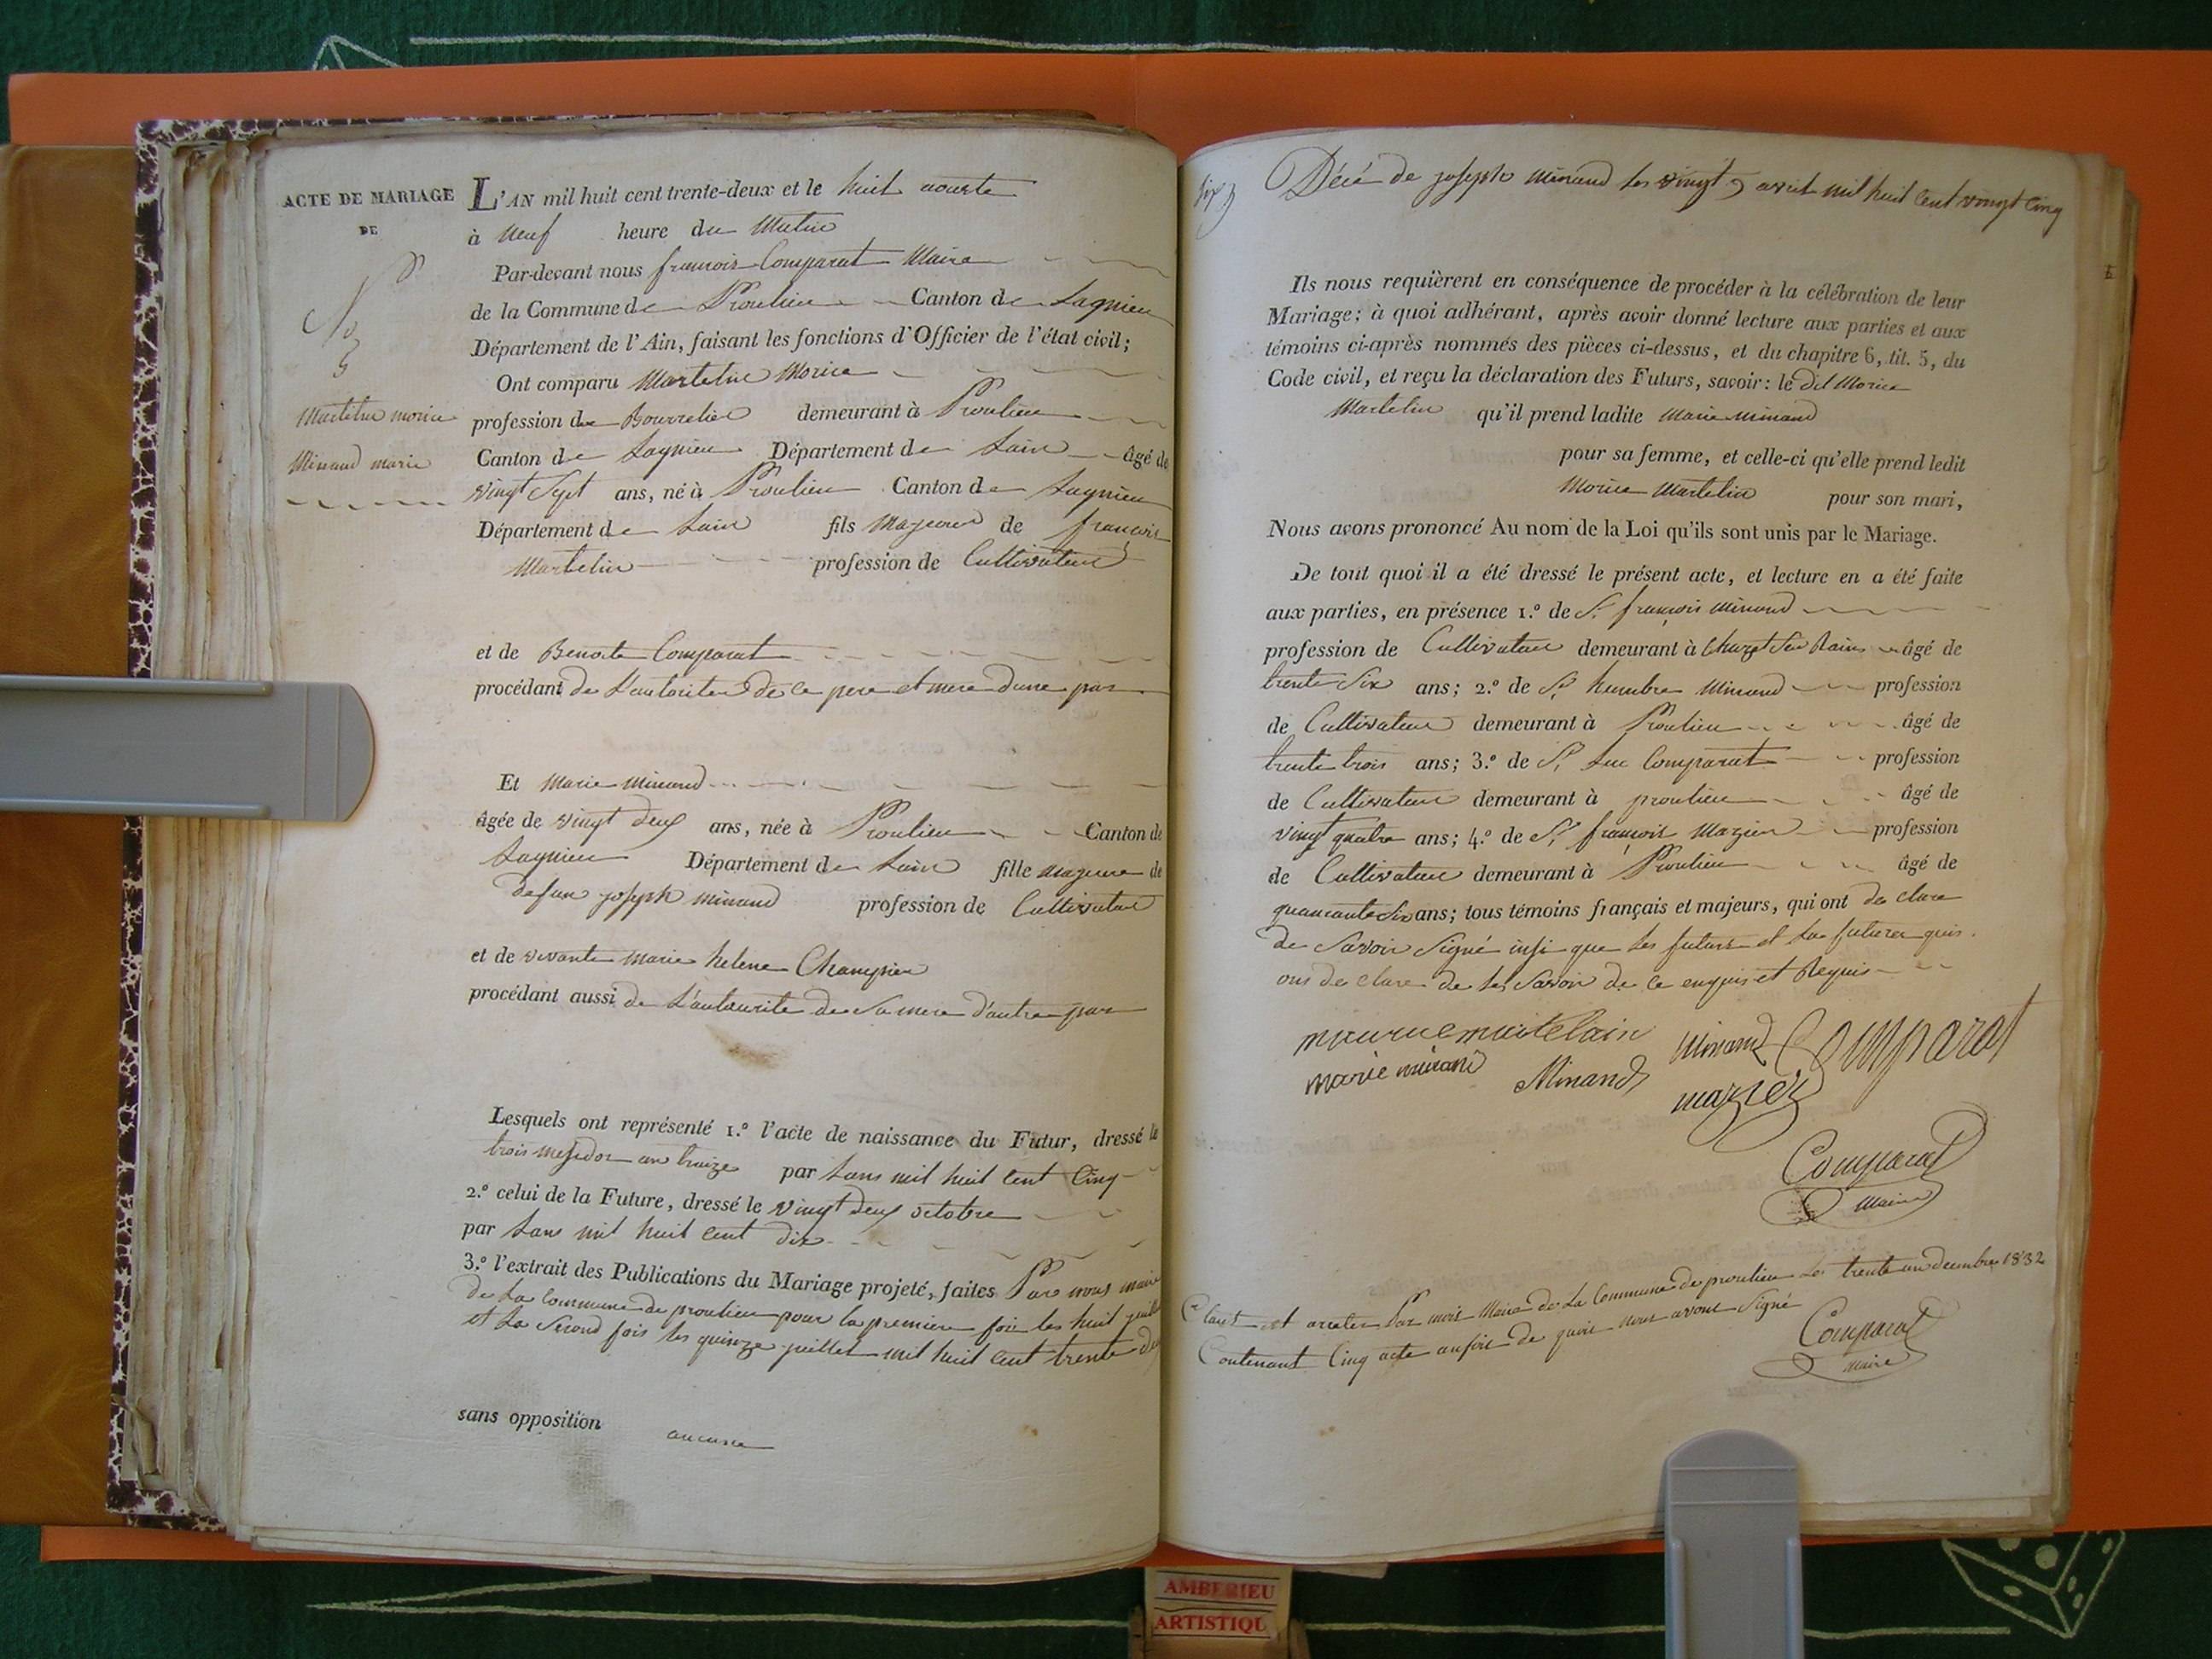 ACTE DE MARIAGE
DE
No
5
Martelin morice
Minand marie
L'AN mil huit cent trente-deux et le huit aouste
à neuf heure du Matin
Par-devant nous francois Comparat Maire
de la Commune de Proulieu Canton de Lagnieu
Département de l'Ain, faisant les fonctions d'Officier de l'état civil;
Ont comparu Martelin Morice
profession de Bourrelier demeurant à Proulieu
Canton de Lagnieu Département de Lain âgé de
vingt Sept ans, né à Proulieu Canton de Lagnieu
Département de Lain fils Majeur de françois
Martelin profession de Cultivateur
et de Benoite Comparat
procédant de L'autorite de ce pere et mere d'une par
Et Marie Minand
âgée de vingt deux ans, née à Proulieu Canton de
Lagnieu Département de Lain fille majeure de
defun joseph minand profession de Cultivateur
et de vivante marie helene Champier
procédant aussi de L'autaurite de Sa mere d'autre par
Lesquels ont représenté 1.º l'acte de naissance du Futur, dressé le
trois messidor an traize par Lans mil huit Cent Cinq
2.º celui de la Future, dressé le vingt deux octobre
par Lans mil huit Cent dix
3.º l'extrait des Publications du Mariage projeté, faites Par nous maire
de La Commune de proulieu pour la premiere fois les huit juillet
et La Second fois les quinze juillet mil huit Cent trente deux
sans opposition aucune
six
Décé de joseph minand les vingt 9 avril mil huit Cent vingt Cinq
Ils nous requièrent en conséquence de procéder à la célébration de leur
Mariage; à quoi adhérant, après avoir donné lecture aux parties et aux
témoins ci-après nommés des pièces ci-dessus, et du chapitre 6, tit. 5, du
Code civil, et reçu la déclaration des Futurs, savoir: le dit Morice
Martelin qu'il prend ladite Marie minand
pour sa femme, et celle-ci qu'elle prend ledit
Morice Martelin pour son mari,
Nous avons prononcé Au nom de la Loi qu'ils sont unis par le Mariage.
De tout quoi il a été dressé le présent acte, et lecture en a été faite
aux parties, en présence 1.º de Sr françois minand
profession de Cultivateur demeurant à âgé de
trente Six ans; 2.º de Sr Minand profession
de Cultivateur demeurant à Proulieu âgé de
trente trois ans; 3.º de Sr Luc Comparat profession
de Cultivateur demeurant à proulieu âgé de
vingt quatre ans; 4.º de Sr françois Mazier profession
de Cultivateur demeurant à Proulieu âgé de
quarante Six ans; tous témoins français et majeurs, qui ont de clare
de Savoir Signé insi que les futurs et La future quis
ons de clare de les Savoir de ce enquis et Requis
maurice martelain
marie minand
Minand
minand
Comparat
mazier
Comparat
Maire
Claut et arreter Par moi Maire de La Commune de proulieu Le trente un decembre 1832
Contenant Cinq acte anfoi de quoi nous avons Signé
Comparat
maire
AMBERIEU
ARTISTIQU